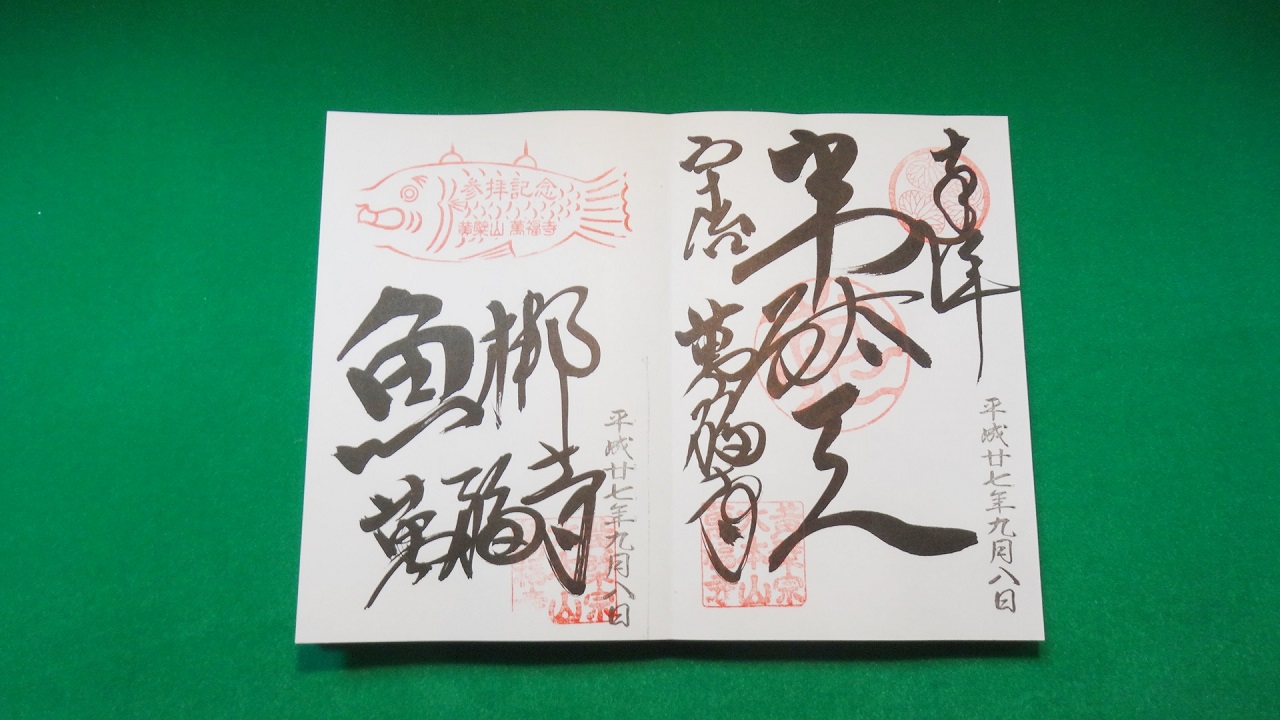 奉拝
韋駄天
宇治 萬福寺
平成廿七年九月八日
黄檗宗
大本山
参拝記念
黄檗山 萬福寺
魚梆
萬福寺
平成廿七年九月八日